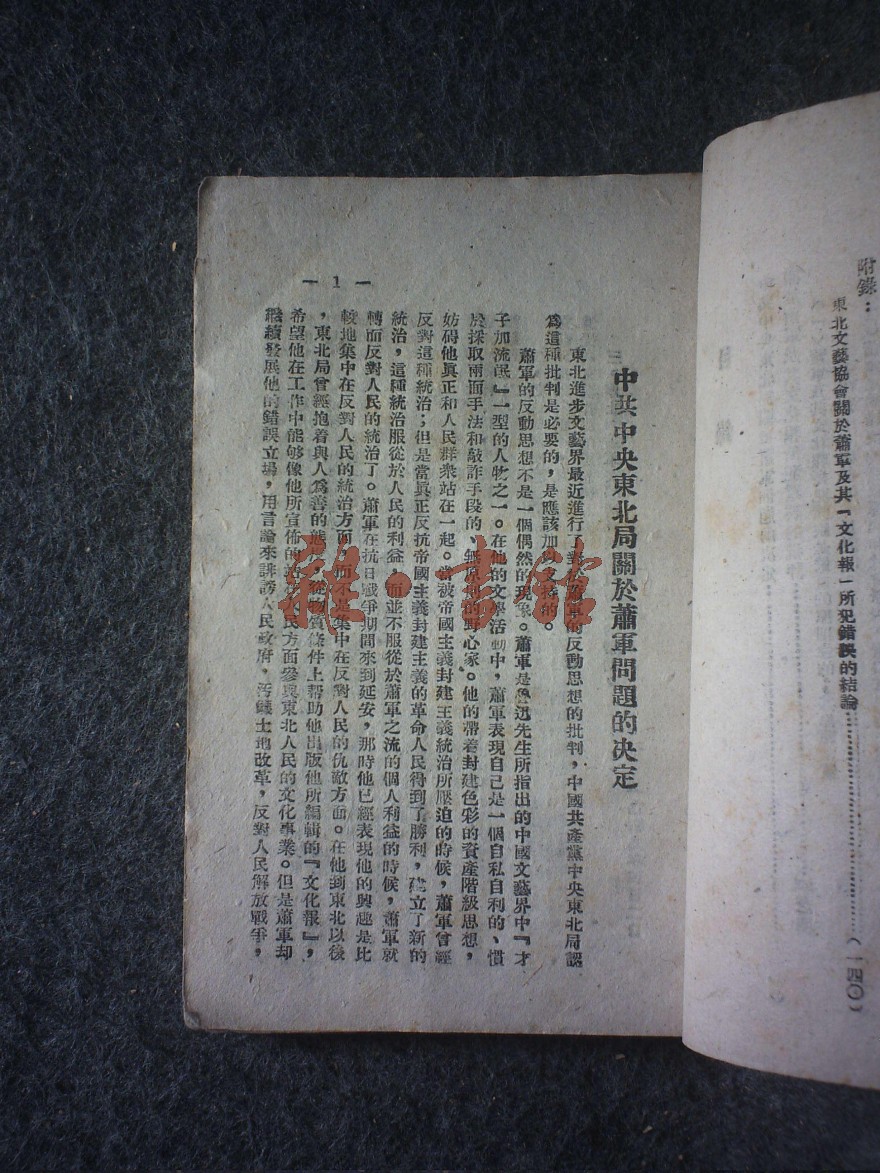 附錄：
東北文藝協會關於蕭軍及其『文化報』所犯錯誤的結論…………（一四〇）
中共中央東北局關於蕭軍問題的決定
東北進步文藝界最近進行了對於蕭軍的反動思想的批判，中國共產黨中央東北局認
爲這種批判是必要的，是應該加以支持的。
蕭軍的反動思想不是一個偶然的現象。蕭軍是魯迅先生所指出的中國文藝界中『才
子加流氓』一型的人物之一。在他的文學活動中，蕭軍表現自己是一個自私自利的、慣
於採取兩面手法和敲詐手段的、無原則的野心家。他的帶着封建色彩的資產階級思想，
妨碍他眞正和人民群衆站在一起。當被帝國主義封建主義統治所壓迫的時候，蕭軍曾經
反對這種統治；但是當眞正反抗帝國主義封建主義的革命人民得到了勝利，建立了新的
統治，這種統治服從於人民的利益，而並不服從於蕭軍之流的個人利益的時候，蕭軍就
轉而反對人民的統治了。蕭軍在抗日戰爭期間來到延安，那時他已經表現他的興趣是比
較地集中在反對人民的統治方面，而不是集中在反對人民的仇敵方面。在他到東北以後
，東北局曾經抱着與人爲善的態度，從物質條件上幫助他出版他所編輯的『文化報』，
希望他在工作中能够像他所宣佈的站在人民方面參與東北人民的文化事業。但是蕭軍却
繼續發展他的錯誤立場，用言論來誹謗人民政府，汚衊土地改革，反對人民解放戰爭，
— 1 —
雅·書館